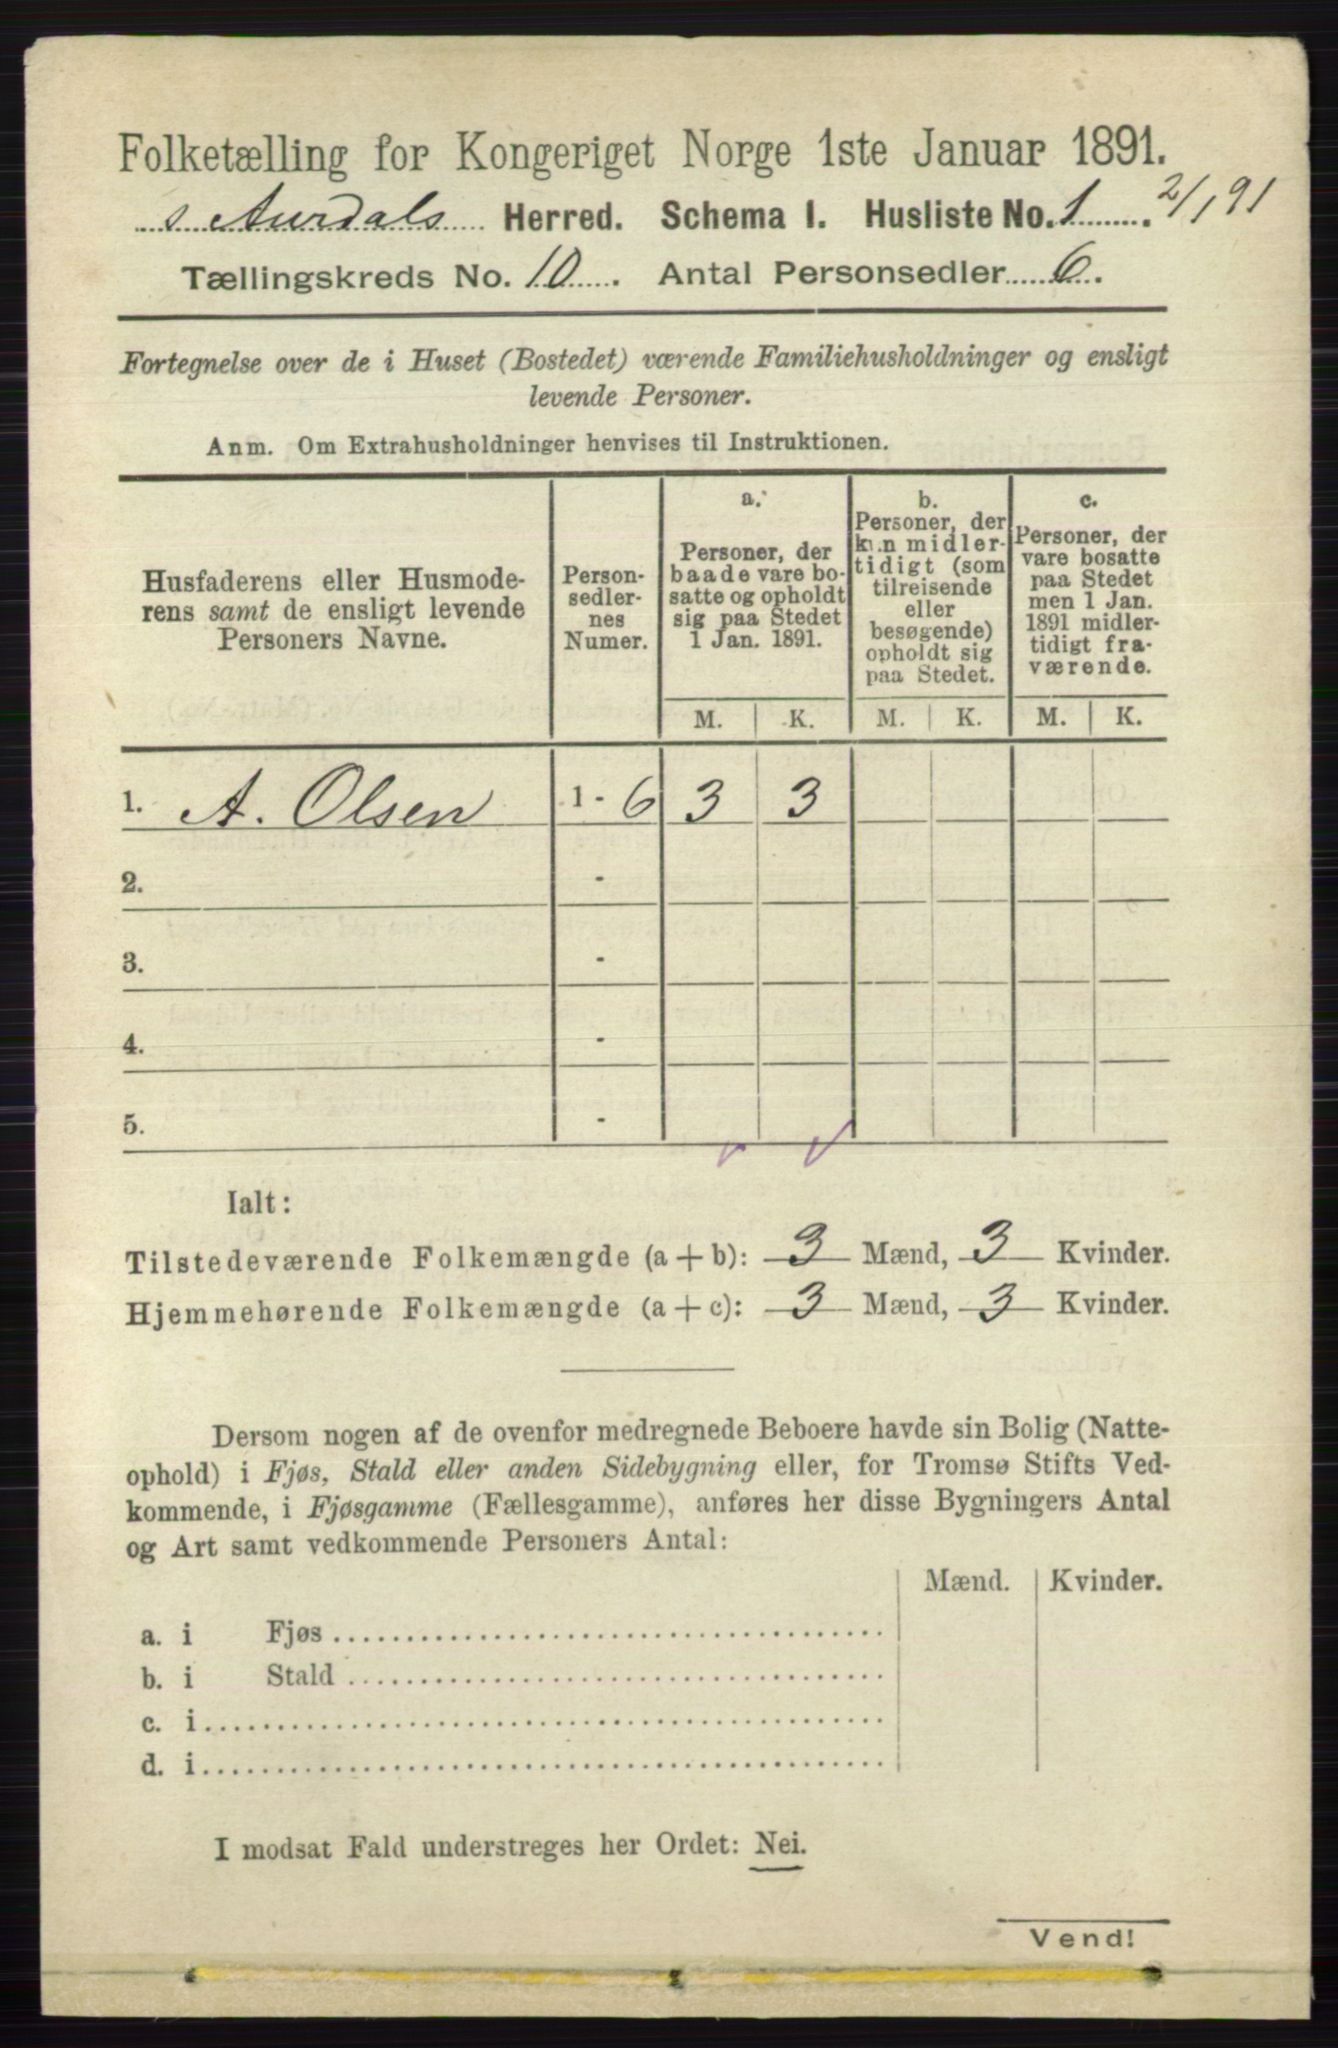 Folketælling for Kongeriget Norge 1ste Januar 1891.
s. Aurdals Herred. Schema I. Husliste No. 1. 2/1 91
Tællingskreds No. 10. Antal Personsedler 6.
Fortegnelse over de i Huset (Bostedet) værende Familiehusholdninger og ensligt
levende Personer.
Anm. Om Extrahusholdninger henvises til Instruktionen.
Husfaderens eller Husmode-
rens samt de ensligt levende
Personers Navne.
Person-
sedler-
nes
Numer.
a.
Personer, der
baade vare bo-
satte og opholdt
sig paa Stedet
1 Jan. 1891.
b.
Personer, der
kun midler-
tidigt (som
tilreisende
eller
besøgende)
opholdt sig
paa Stedet.
c.
Personer, der
vare bosatte
paa Stedet
men 1 Jan.
1891 midler-
tidigt fra-
værende.
M. K. M. K. M. K.
1. A. Olsen 1 - 6 3 3
2. -
3. -
4. -
5. -
Ialt:
Tilstedeværende Folkemængde (a + b): 3 Mænd, 3 Kvinder.
Hjemmehørende Folkemængde (a + c): 3 Mænd, 3 Kvinder.
Dersom nogen af de ovenfor medregnede Beboere havde sin Bolig (Natte-
ophold) i Fjøs, Stald eller anden Sidebygning eller, for Tromsø Stifts Ved-
kommende, i Fjøsgamme (Fællesgamme), anføres her disse Bygningers Antal
og Art samt vedkommende Personers Antal:
Mænd. Kvinder.
a. i Fjøs
b. i Stald
c. i
d. i
I modsat Fald understreges her Ordet: Nei.
Vend!